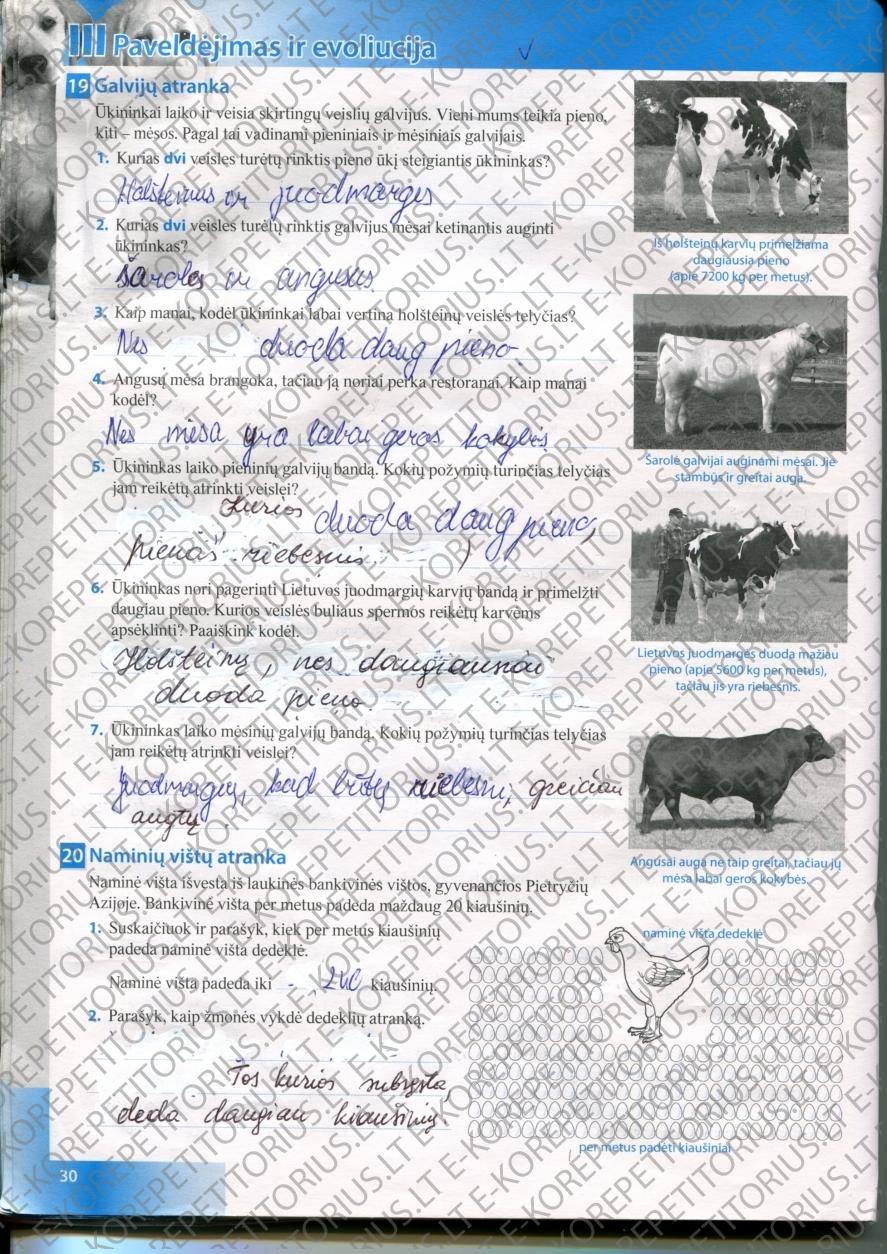 III Paveldėjimas ir evoliucija
19 Galvijų atranka
Ūkininkai laiko ir veisia skirtingų veislių galvijus. Vieni mums teikia pieno,
kiti – mėsos. Pagal tai vadinami pieniniais ir mėsiniais galvijais.
1. Kurias dvi veisles turėtų rinktis pieno ūkį steigiantis ūkininkas?
Holšteinus ir juodmarges
2. Kurias dvi veisles turėtų rinktis galvijus mėsai ketinantis auginti
ūkininkas?
Šarolės ir angusus
3. Kaip manai, kodėl ūkininkai labai vertina holšteinų veislės telyčias?
Nes duoda daug pieno.
4. Angusų mėsa brangoka, tačiau ją noriai perka restoranai. Kaip manai
kodėl?
Nes mėsa yra labai geros kokybės
5. Ūkininkas laiko pieninių galvijų bandą. Kokių požymių turinčias telyčias
jam reikėtų atrinkti veislei?
Kurios duoda daug pieno,
pienas riebesnis.
6. Ūkininkas nori pagerinti Lietuvos juodmargių karvių bandą ir primelžti
daugiau pieno. Kurios veislės buliaus spermos reikėtų karvėms
apsėklinti? Paaiškink kodėl.
Holšteinų, nes daugiausiai
duoda pieno.
7. Ūkininkas laiko mėsinių galvijų bandą. Kokių požymių turinčias telyčias
jam reikėtų atrinkti veislei?
Juodmargių, kad būtų riebesni, greičiau
augtų
Iš holšteinų karvių primelžiama
daugiausia pieno
(apie 7200 kg per metus).
Šarolė galvijai auginami mėsai. Jie
stambūs ir greitai auga.
Lietuvos juodmargės duoda mažiau
pieno (apie 5600 kg per metus),
tačiau jis yra riebesnis.
Angusai auga ne taip greitai, tačiau jų
mėsa labai geros kokybės.
20 Naminių vištų atranka
Naminė višta išvesta iš laukinės bankivinės vištos, gyvenančios Pietryčių
Azijoje. Bankivinė višta per metus padeda maždaug 20 kiaušinių.
1. Suskaičiuok ir parašyk, kiek per metus kiaušinių
padeda naminė višta dedeklė.
Naminė višta padeda iki 240 kiaušinių.
2. Parašyk, kaip žmonės vykdė dedeklių atranką.
Tos kurios subręsta,
deda daugiau kiaušinių.
naminė višta dedeklė
per metus padėti kiaušiniai
30
E-KOREPETITORIUS.LT